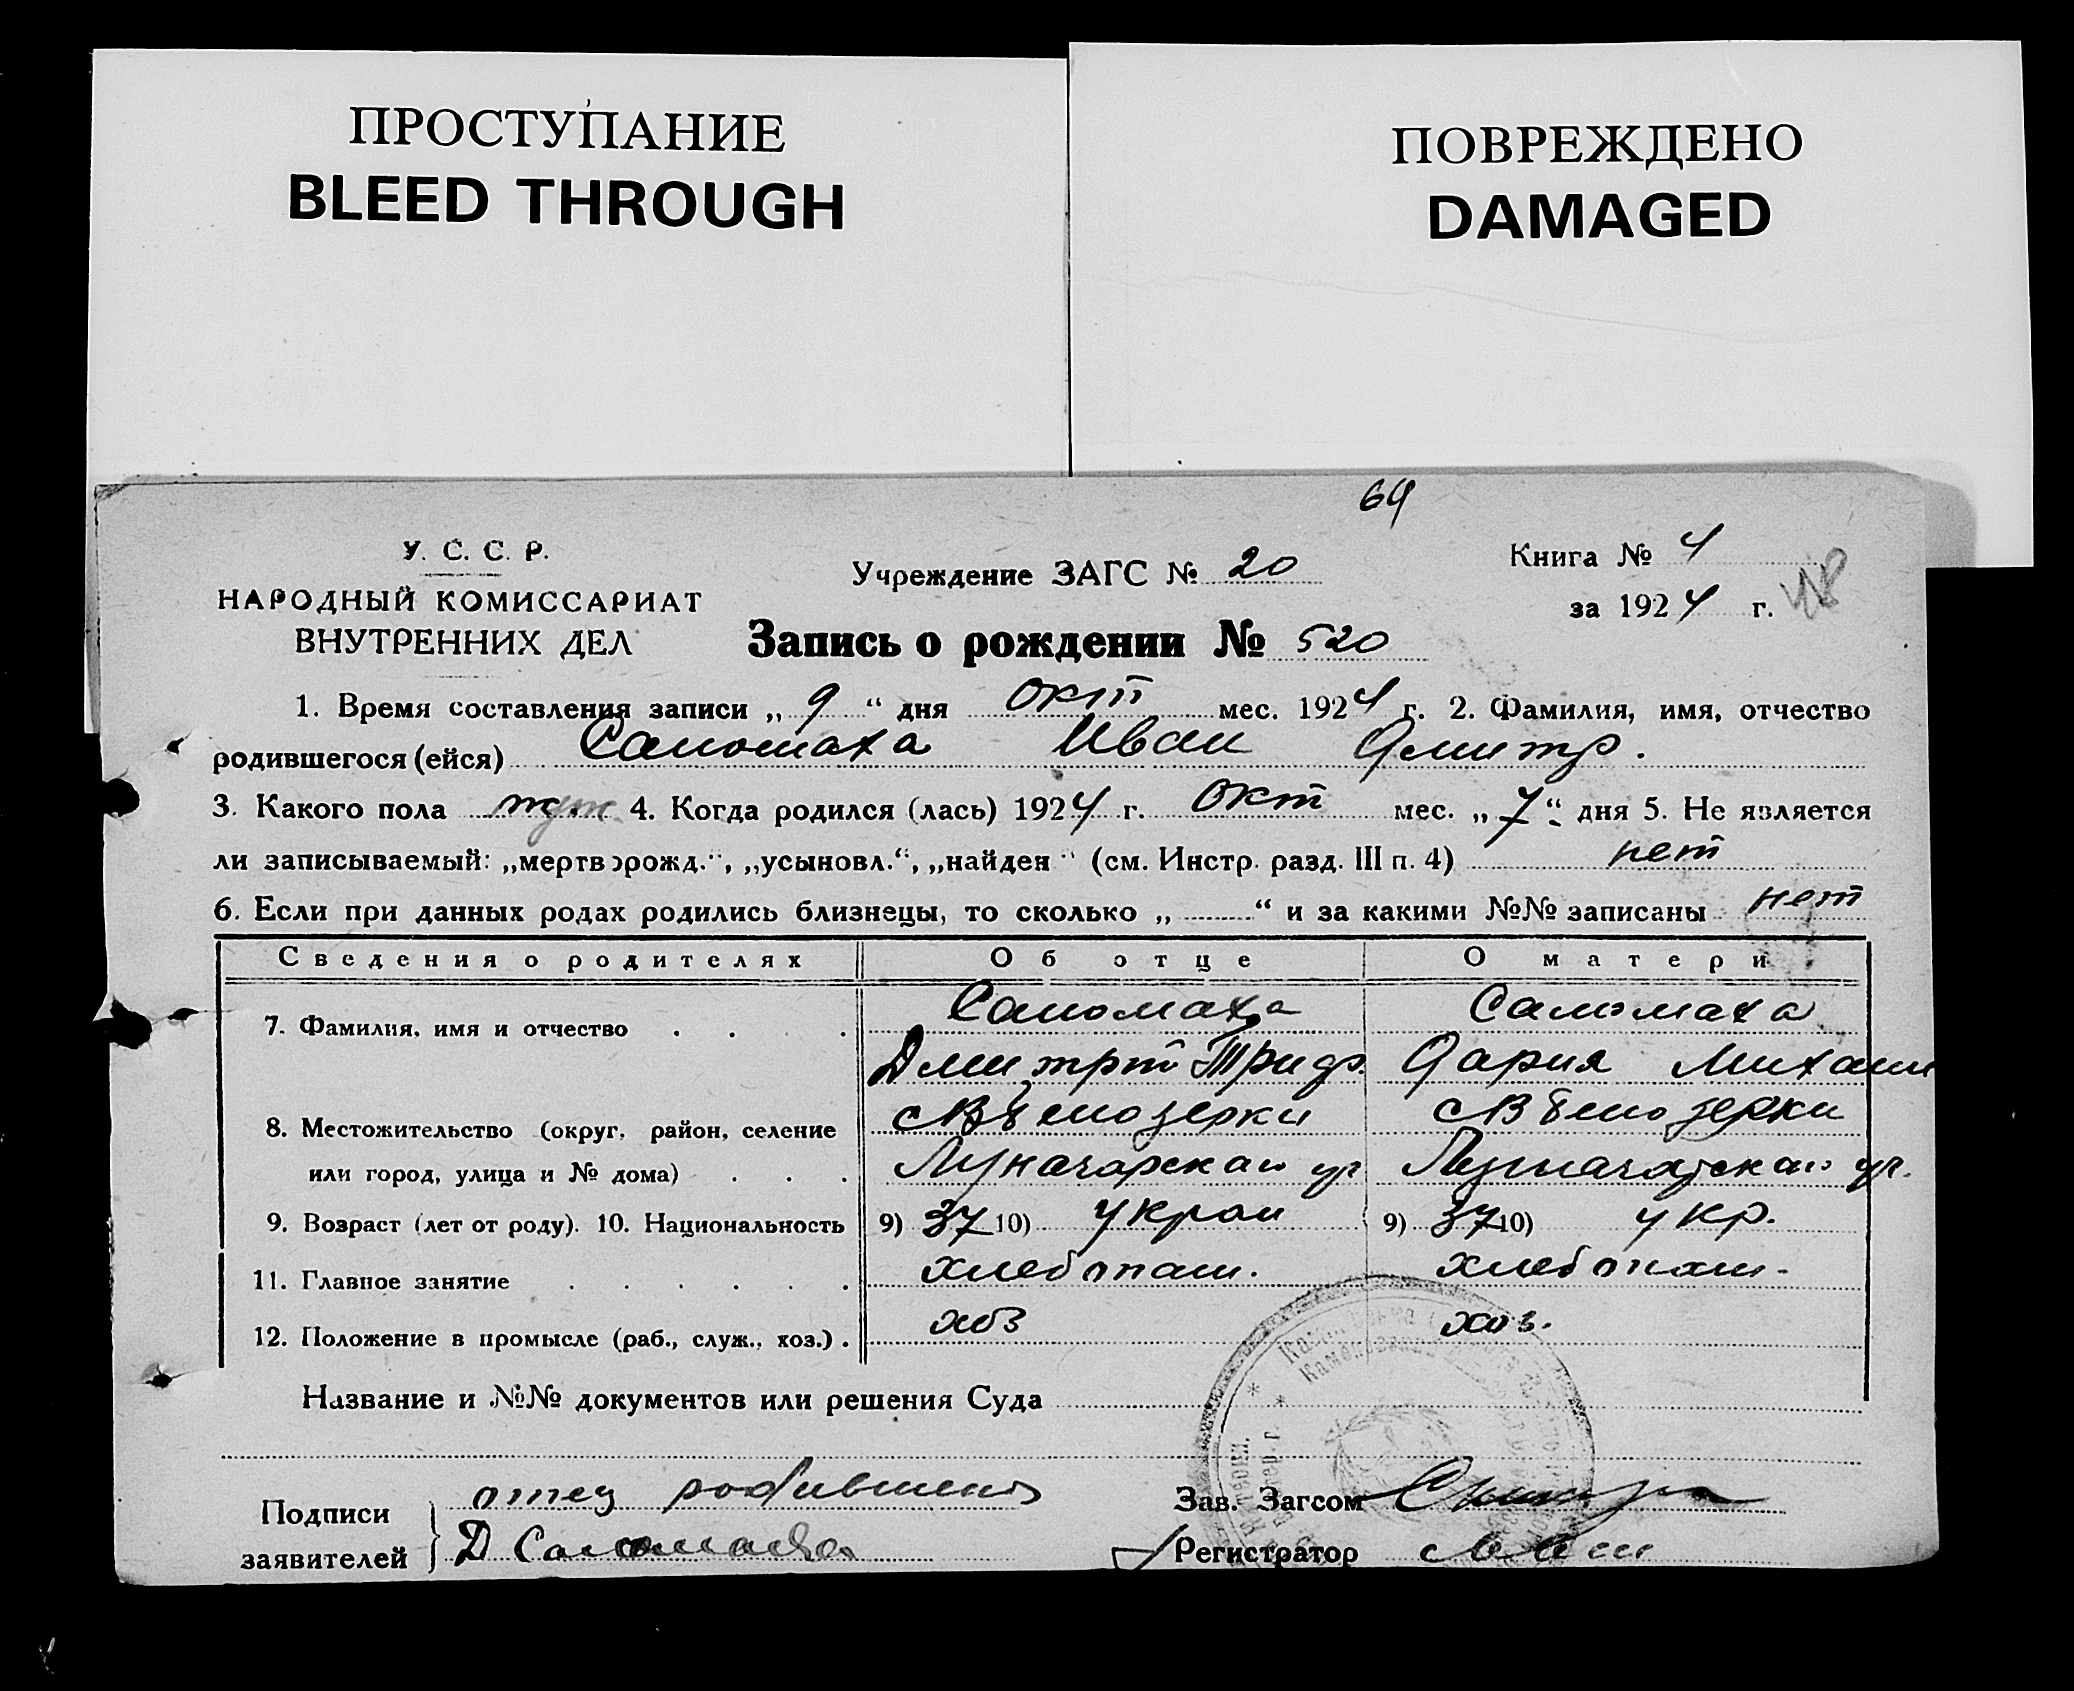 ПРОСТУПАНИЕ
BLEED THROUGH
ПОВРЕЖДЕНО
DAMAGED
69
У. С. С. Р.
НАРОДНЫЙ КОМИССАРИАТ
ВНУТРЕННИХ ДЕЛ
Учреждение ЗАГС № 20
Книга № 4
за 1924 г.
Запись о рождении № 520
1. Время составления записи „ 9 “ дня окт мес. 1924 г. 2. Фамилия, имя, отчество
родившегося (ейся) Саломаха Иван Дмитр.
3. Какого пола муж. 4. Когда родился (лась) 1924 г. окт мес. „ 7 “ дня 5. Не является
ли записываемый: „мертворожд.“, „усыновл.“, „найден“ (см. Инстр. разд. III п. 4) нет
6. Если при данных родах родились близнецы, то сколько „ “ и за какими №№ записаны нет
Сведения о родителях Об отце О матери
7. Фамилия, имя и отчество Саломаха Саломаха
Дмитрий Дария Михаил
8. Местожительство (округ, район, селение Белозерки Белозерки
или город, улица и № дома) Луначарская ул Луначарская ул.
9. Возраст (лет от роду). 10. Национальность 9) 37 10) украи 9) 37 10) укр.
11. Главное занятие хлебопаш. хлебопаш.
12. Положение в промысле (раб., служ., хоз.) хоз хоз.
Название и №№ документов или решения Суда
Подписи отец родившего
заявителей Д Саломаха
Зав. Загсом
Регистратор